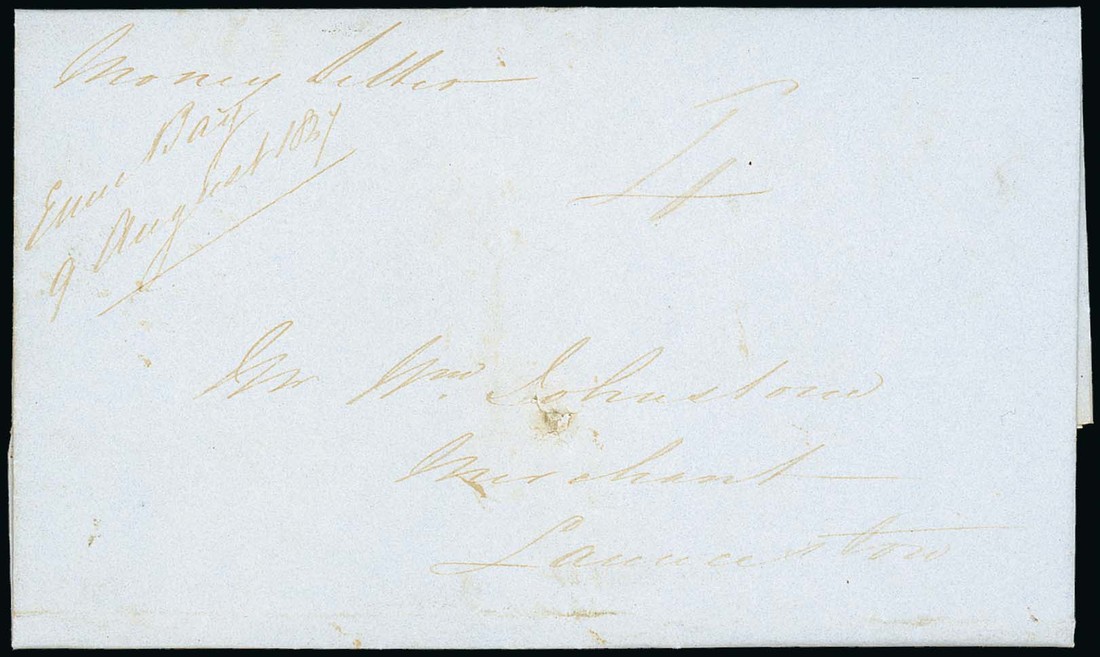 Money Letter
4
Emu Bay
9 August 1837
Mr Wm. Johnstone
Merchant
Launceston